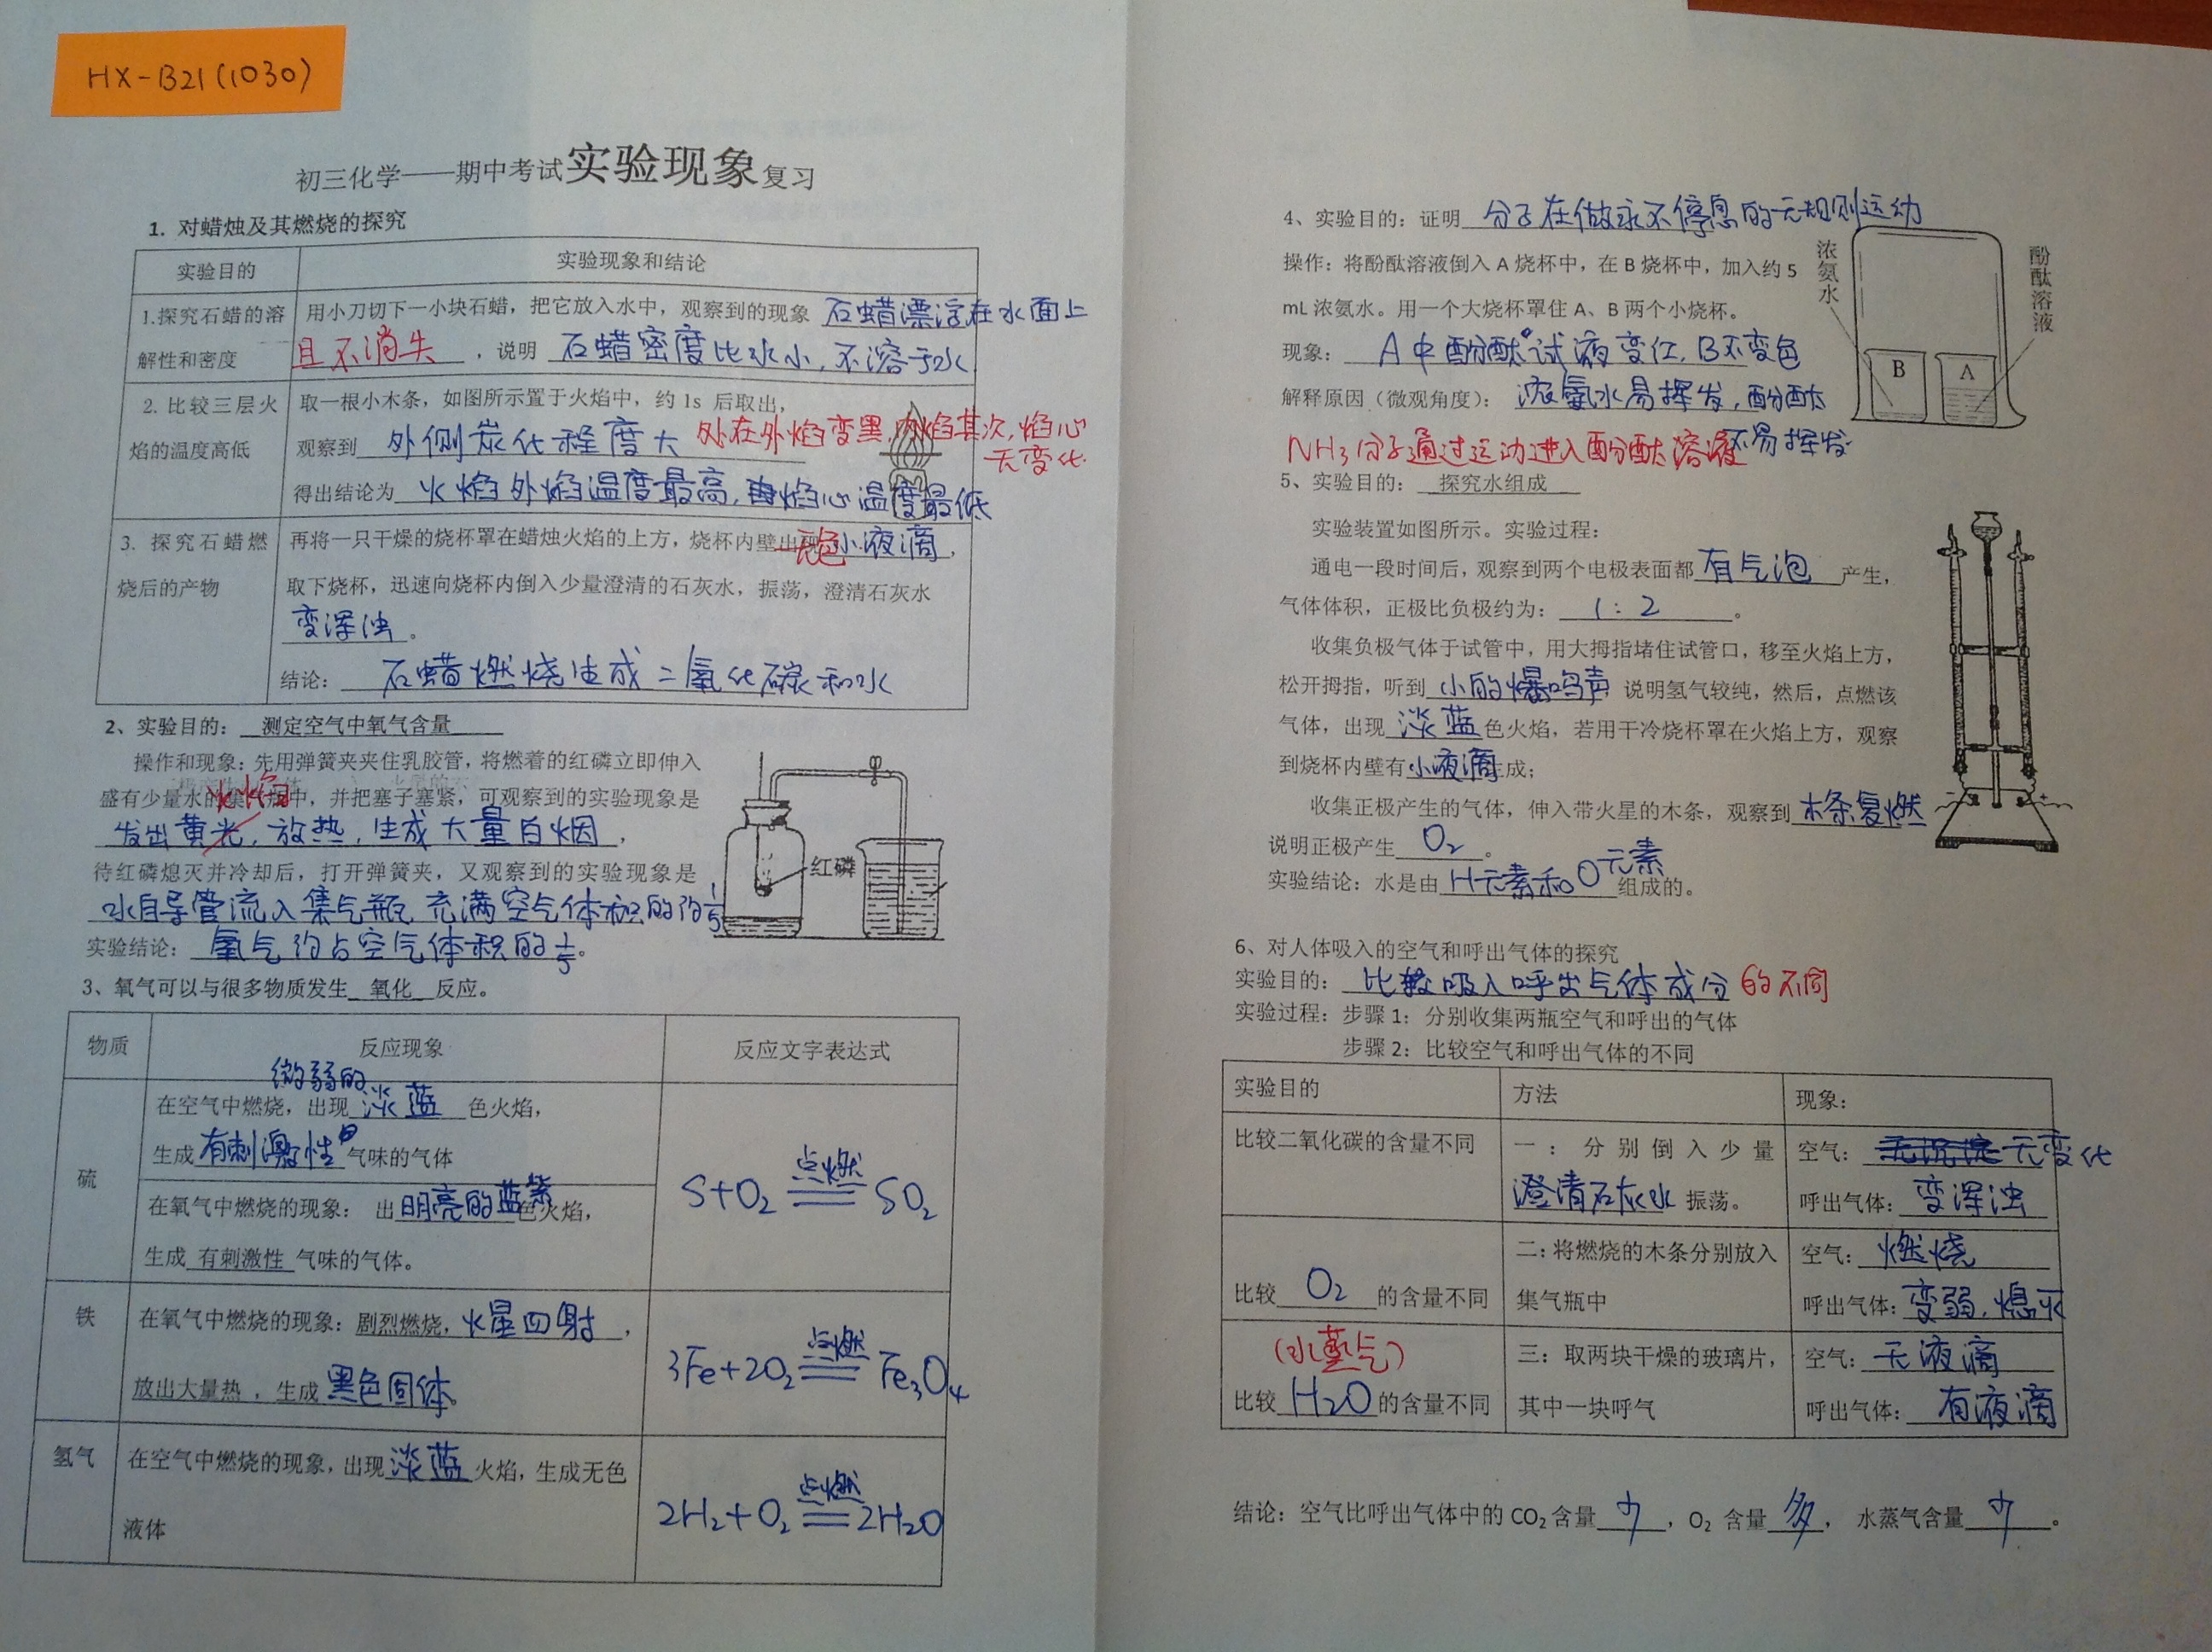 HX-B21(1030)
初三化学——期中考试实验现象复习
1. 对蜡烛及其燃烧的探究
实验目的 实验现象和结论
1.探究石蜡的溶 用小刀切下一小块石蜡，把它放入水中，观察到的现象 石蜡漂浮在水面上
解性和密度 且不消失，说明 石蜡密度比水小，不溶于水
2. 比较三层火 取一根小木条，如图所示置于火焰中，约1s 后取出，
焰的温度高低 观察到 外侧炭化程度大 处在外焰变黑，内焰其次，焰心
无变化
得出结论为 火焰外焰温度最高，焰心温度最低
3. 探究石蜡燃 再将一只干燥的烧杯罩在蜡烛火焰的上方，烧杯内壁出现无色小液滴，
烧后的产物 取下烧杯，迅速向烧杯内倒入少量澄清的石灰水，振荡，澄清石灰水
变浑浊。
结论：石蜡燃烧生成二氧化碳和水
2、实验目的：测定空气中氧气含量
操作和现象：先用弹簧夹夹住乳胶管，将燃着的红磷立即伸入
盛有少量水的集气瓶中，并把塞子塞紧，可观察到的实验现象是
火焰
发出黄光，放热，生成大量白烟，
待红磷熄灭并冷却后，打开弹簧夹，又观察到的实验现象是
水自导管流入集气瓶 充满空气体积的约1/5
实验结论：氧气约占空气体积的1/5。
红磷
3、氧气可以与很多物质发生 氧化 反应。
物质 反应现象 反应文字表达式
微弱的
在空气中燃烧，出现 淡蓝 色火焰，
生成有刺激性气味的气体
硫
S+O₂ 点燃 SO₂
在氧气中燃烧的现象：出明亮的蓝紫色火焰，
生成 有刺激性 气味的气体。
铁 在氧气中燃烧的现象：剧烈燃烧，火星四射，
放出大量热，生成 黑色固体。
3Fe+2O₂ 点燃 Fe₃O₄
氢气 在空气中燃烧的现象，出现淡蓝火焰，生成无色
液体
2H₂+O₂ 点燃 2H₂O
4、实验目的：证明 分子在做永不停息的无规则运动
操作：将酚酞溶液倒入 A 烧杯中，在 B 烧杯中，加入约 5
mL 浓氨水。用一个大烧杯罩住 A、B 两个小烧杯。
现象：A中酚酞试液变红，B不变色
解释原因（微观角度）：浓氨水易挥发，酚酞
不易挥发
NH₃分子通过运动进入酚酞溶液
浓氨水
酚酞溶液
B A
5、实验目的：探究水组成
实验装置如图所示。实验过程：
通电一段时间后，观察到两个电极表面都有气泡产生，
气体体积，正极比负极约为：1：2。
收集负极气体于试管中，用大拇指堵住试管口，移至火焰上方，
松开拇指，听到 小的爆鸣声 说明氢气较纯，然后，点燃该
气体，出现 淡蓝 色火焰，若用干冷烧杯罩在火焰上方，观察
到烧杯内壁有小液滴生成；
收集正极产生的气体，伸入带火星的木条，观察到木条复燃
说明正极产生 O₂。
实验结论：水是由 H元素和O元素 组成的。
6、对人体吸入的空气和呼出气体的探究
实验目的：比较吸入呼出气体成分的不同
实验过程：步骤 1：分别收集两瓶空气和呼出的气体
步骤 2：比较空气和呼出气体的不同
实验目的 方法 现象：
比较二氧化碳的含量不同 一：分别倒入少量 空气：无变化
澄清石灰水 振荡。 呼出气体：变浑浊
二：将燃烧的木条分别放入 空气：燃烧
比较 O₂ 的含量不同 集气瓶中 呼出气体：变弱，熄灭
（水蒸气） 三：取两块干燥的玻璃片， 空气：无液滴
比较 H₂O 的含量不同 其中一块呼气 呼出气体：有液滴
结论：空气比呼出气体中的 CO₂ 含量 少，O₂ 含量 多，水蒸气含量 少。